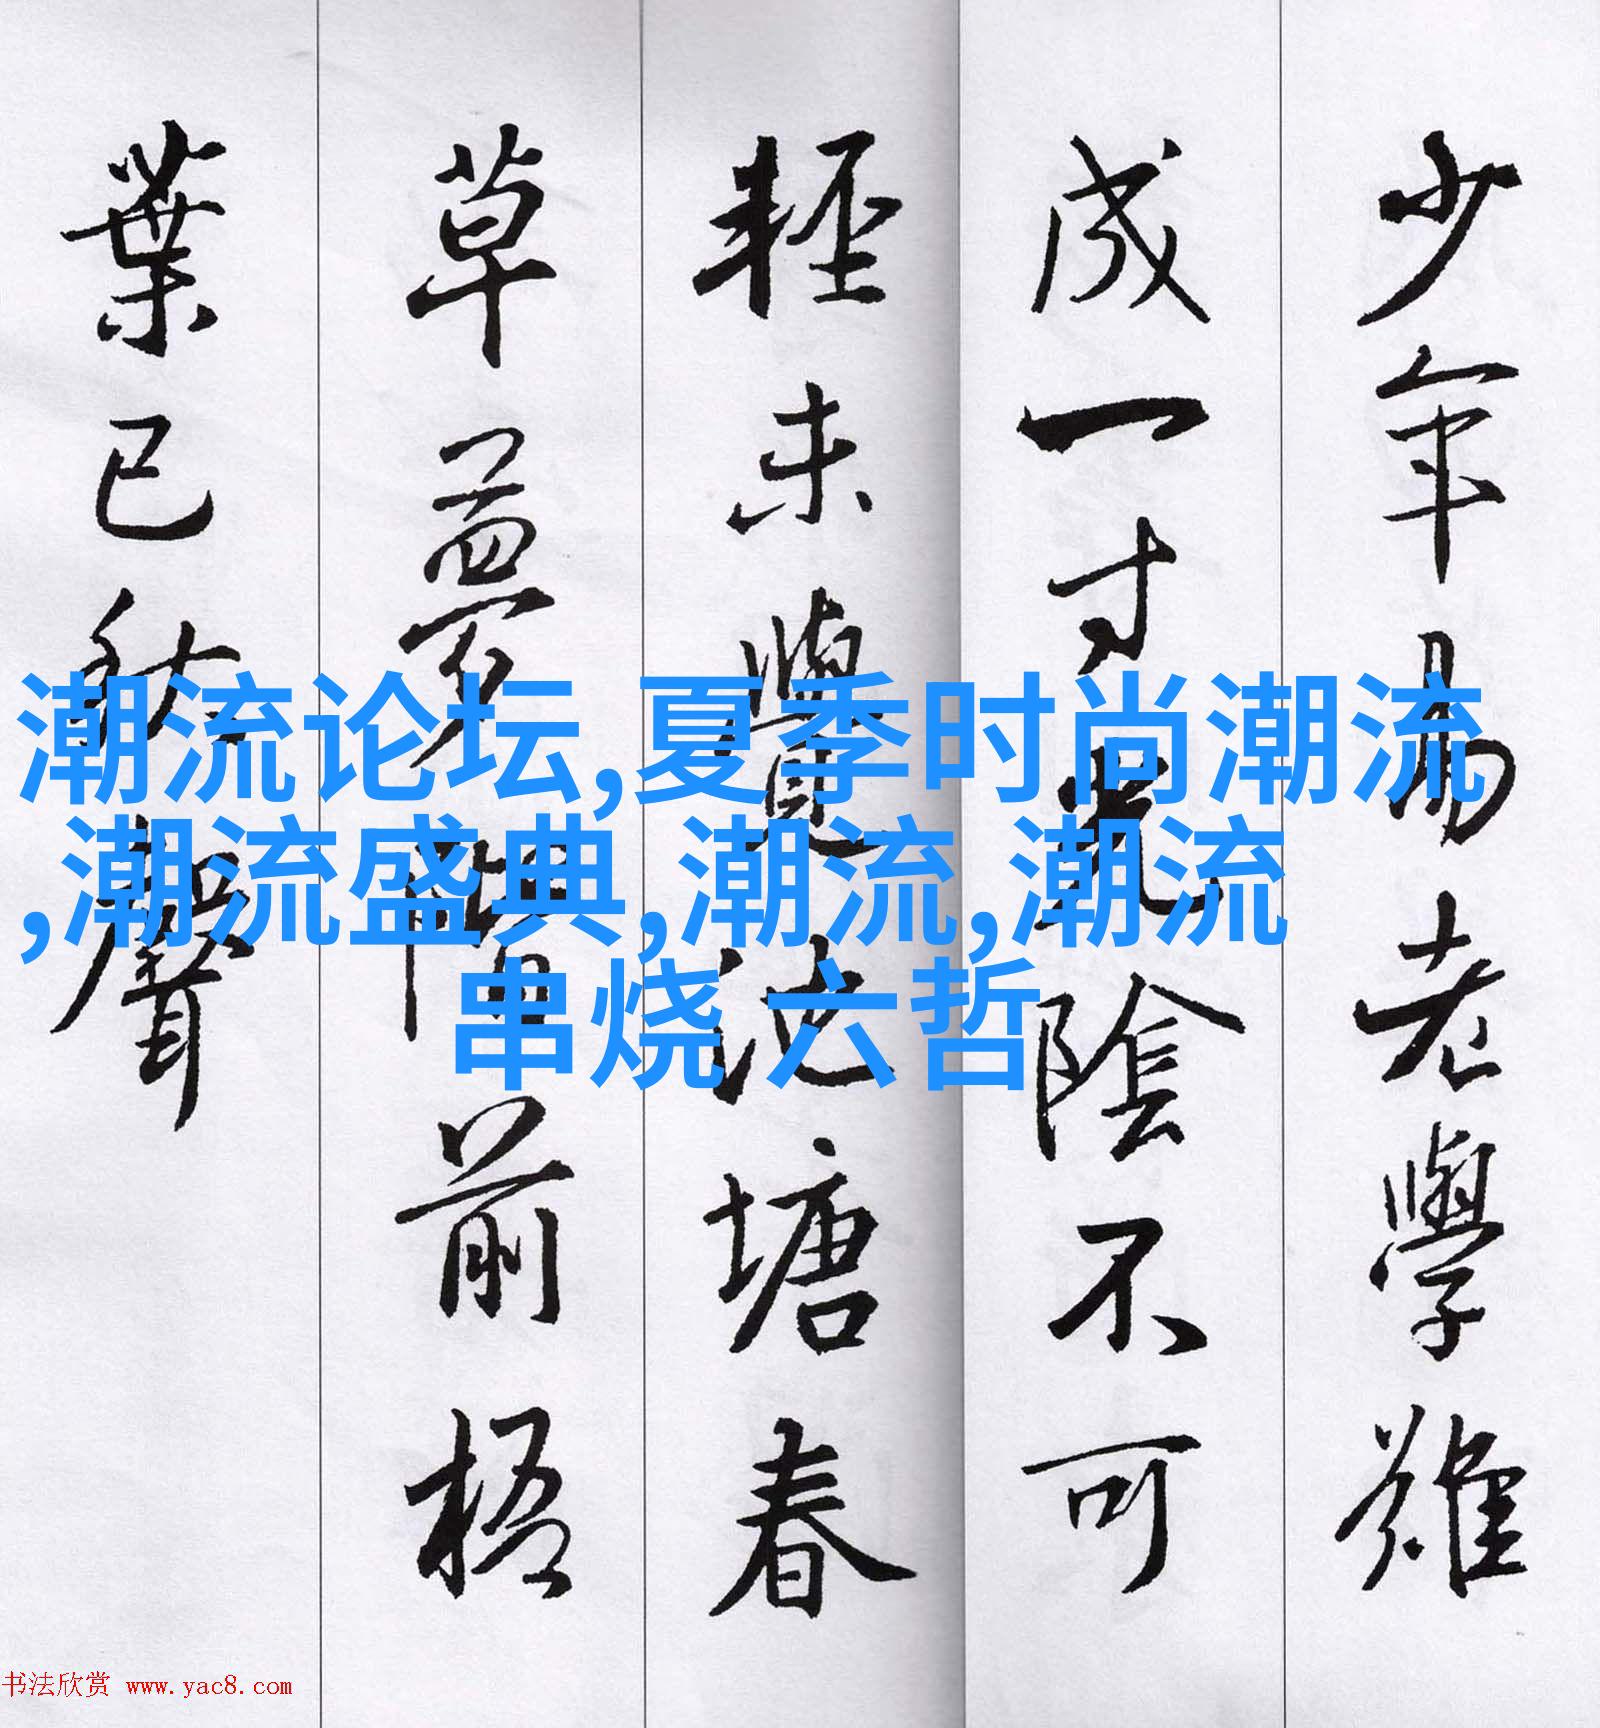 少年易老學難
成一寸光陰不可
輕未覺池塘春
草夢階前梧
葉已秋聲
潮流论坛,夏季时尚潮流
,潮流盛典,潮流,潮流
串烧 六哲
书法欣赏 www.yac8.com